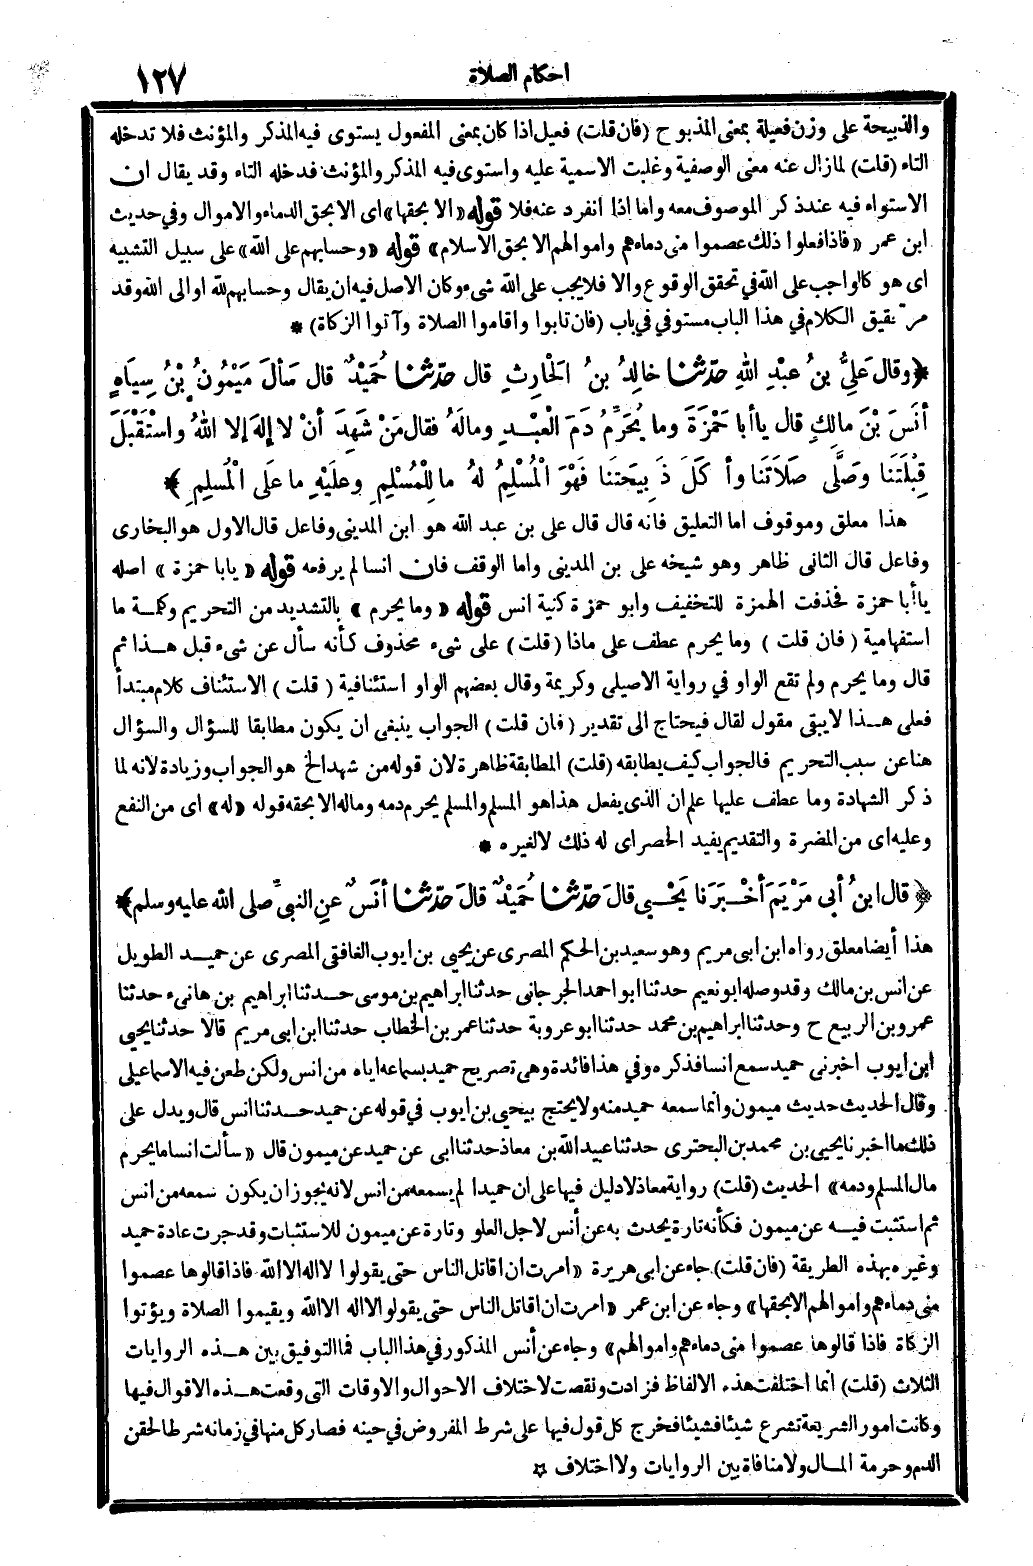 احكام الصلاة
١٢٧
والذبيحة على وزن فعيلة بمعنى المذبوح (فان قلت) فعيل اذا كان بمعنى المفعول يستوى فيه المذكر والمؤنث فلا تدخله
التاء (قلت) لما زال عنه معنى الوصفية وغلبت الاسمية عليه واستوى فيه المذكر والمؤنث فدخله التاء وقد يقال ان
الاستواء فيه عند ذكر الموصوف معه واما اذا انفرد عنه فلا قوله «الا بحقها» اى الا بحق الدماء والاموال وفي حديث
ابن عمر «فاذا فعلوا ذلك عصموا منى دماءهم واموالهم الا بحق الاسلام» قوله «وحسابهم على الله» على سبيل التشبيه
اى هو كالواجب على الله في تحقق الوقوع والا فلا يجب على الله شىء وكان الاصل فيه ان يقال وحسابهم لله او الى الله وقد
مر تحقيق الكلام في هذا الباب مستوفي في باب (فان تابوا واقاموا الصلاة وآتوا الزكاة) *
﴿وقال عَلِيُّ بنُ عبْدِ اللهِ حدّثنا خالِدُ بنُ الحَارِثِ قال حدّثنا حُمَيْدٌ قال سَأَلَ مَيْمُونُ بْنُ سِيَاهٍ
أنَسَ بْنَ مالِكٍ قال يا أبا حَمْزَةَ وما يُحَرِّمُ دَمَ الْعَبْدِ ومالَهُ فقال مَنْ شَهِدَ أنْ لا إلهَ إلا اللهُ واسْتَقْبَلَ
قِبْلَتَنَا وَصَلَّى صَلَاتَنَا وأكَلَ ذَبِيحَتَنَا فَهْوَ الْمُسْلِمُ لهُ ما لِلْمُسْلِمِ وعلَيْهِ ما علَى الْمُسلِمِ﴾
هذا معلق وموقوف اما التعليق فانه قال قال على بن عبد الله هو ابن المدينى وفاعل قال الاول هو البخارى
وفاعل قال الثانى ظاهر وهو شيخه على بن المدينى واما الوقف فان انسا لم يرفعه قوله «يابا حمزة» اصله
يا أبا حمزة فحذفت الهمزة للتخفيف وابو حمزة كنية انس قوله «وما يحرم» بالتشديد من التحريم وكلمة ما
استفهامية (فان قلت) وما يحرم عطف على ماذا (قلت) على شىء محذوف كأنه سأل عن شىء قبل هذا ثم
قال وما يحرم ولم تقع الواو في رواية الاصيلى وكريمة وقال بعضهم الواو استئنافية (قلت) الاستئناف كلام مبتدأ
فعلى هذا لا يبقى مقول لقال فيحتاج الى تقدير (فان قلت) الجواب ينبغى ان يكون مطابقا للسؤال والسؤال
هنا عن سبب التحريم فالجواب كيف يطابقه (قلت) المطابقة ظاهرة لان قوله من شهد الخ هو الجواب وزيادة لانه لما
ذكر الشهادة وما عطف عليها علم ان الذى يفعل هذا هو المسلم والمسلم يحرم دمه وماله الا بحقه قوله «له» اى من النفع
وعليه اى من المضرة والتقديم يفيد الحصر اى له ذلك لا لغيره *
﴿قال ابنُ أبى مَرْيَمَ أخْبَرَنا يَحْيى قالَ حدّثنا حُمَيْدٌ قالَ حدّثنا أنَسٌ عنِ النبىِّ صلى الله عليه وسلم﴾
هذا أيضا معلق رواه ابن ابى مريم وهو سعيد بن الحكم المصرى عن يحيى بن ايوب الغافقى المصرى عن حميد الطويل
عن انس بن مالك وقد وصله ابو نعيم حدثنا ابو احمد الجرجانى حدثنا ابراهيم بن موسى حدثنا ابراهيم بن هانىء حدثنا
عمرو بن الربيع ح وحدثنا ابراهيم بن محمد حدثنا ابو عروبة حدثنا عمر بن الخطاب حدثنا ابن ابى مريم قالا حدثنا يحيى
ابن ايوب اخبرنى حميد سمع انسا فذكره وفي هذا فائدة وهى تصريح حميد بسماعه اياه من انس ولكن طعن فيه الاسماعيلى
وقال الحديث حديث ميمون وانما سمعه حميد منه ولا يحتج بيحيى بن ايوب في قوله عن حميد حدثنا انس قال ويدل على
ذلك ما اخبرنا يحيى بن محمد بن البحترى حدثنا عبيد الله بن معاذ حدثنا ابى عن حميد عن ميمون قال «سألت انسا ما يحرم
مال المسلم ودمه» الحديث (قلت) رواية معاذ لا دليل فيها على ان حميدا لم يسمعه من انس لانه يجوز ان يكون سمعه من انس
ثم استثبت فيه عن ميمون فكأنه تارة يحدث به عن أنس لاجل العلو وتارة عن ميمون للاستثبات وقد جرت عادة حميد
وغيره بهذه الطريقة (فان قلت) جاء عن ابى هريرة «امرت ان اقاتل الناس حتى يقولوا لا اله الا الله فاذا قالوها عصموا
منى دماءهم واموالهم الا بحقها» وجاء عن ابن عمر «امرت ان اقاتل الناس حتى يقولوا لا اله الا الله ويقيموا الصلاة ويؤتوا
الزكاة فاذا قالوها عصموا منى دماءهم واموالهم» وجاء عن أنس المذكور في هذا الباب فما التوفيق بين هذه الروايات
الثلاث (قلت) انما اختلفت هذه الالفاظ فزادت ونقصت لاختلاف الاحوال والاوقات التى وقعت هذه الاقوال فيها
وكانت امور الشريعة تشرع شيئا فشيئا فخرج كل قول فيها على شرط المفروض في حينه فصار كل منها في زمانه شرطا لحقن
الدم وحرمة المال ولا منافاة بين الروايات ولا اختلاف *